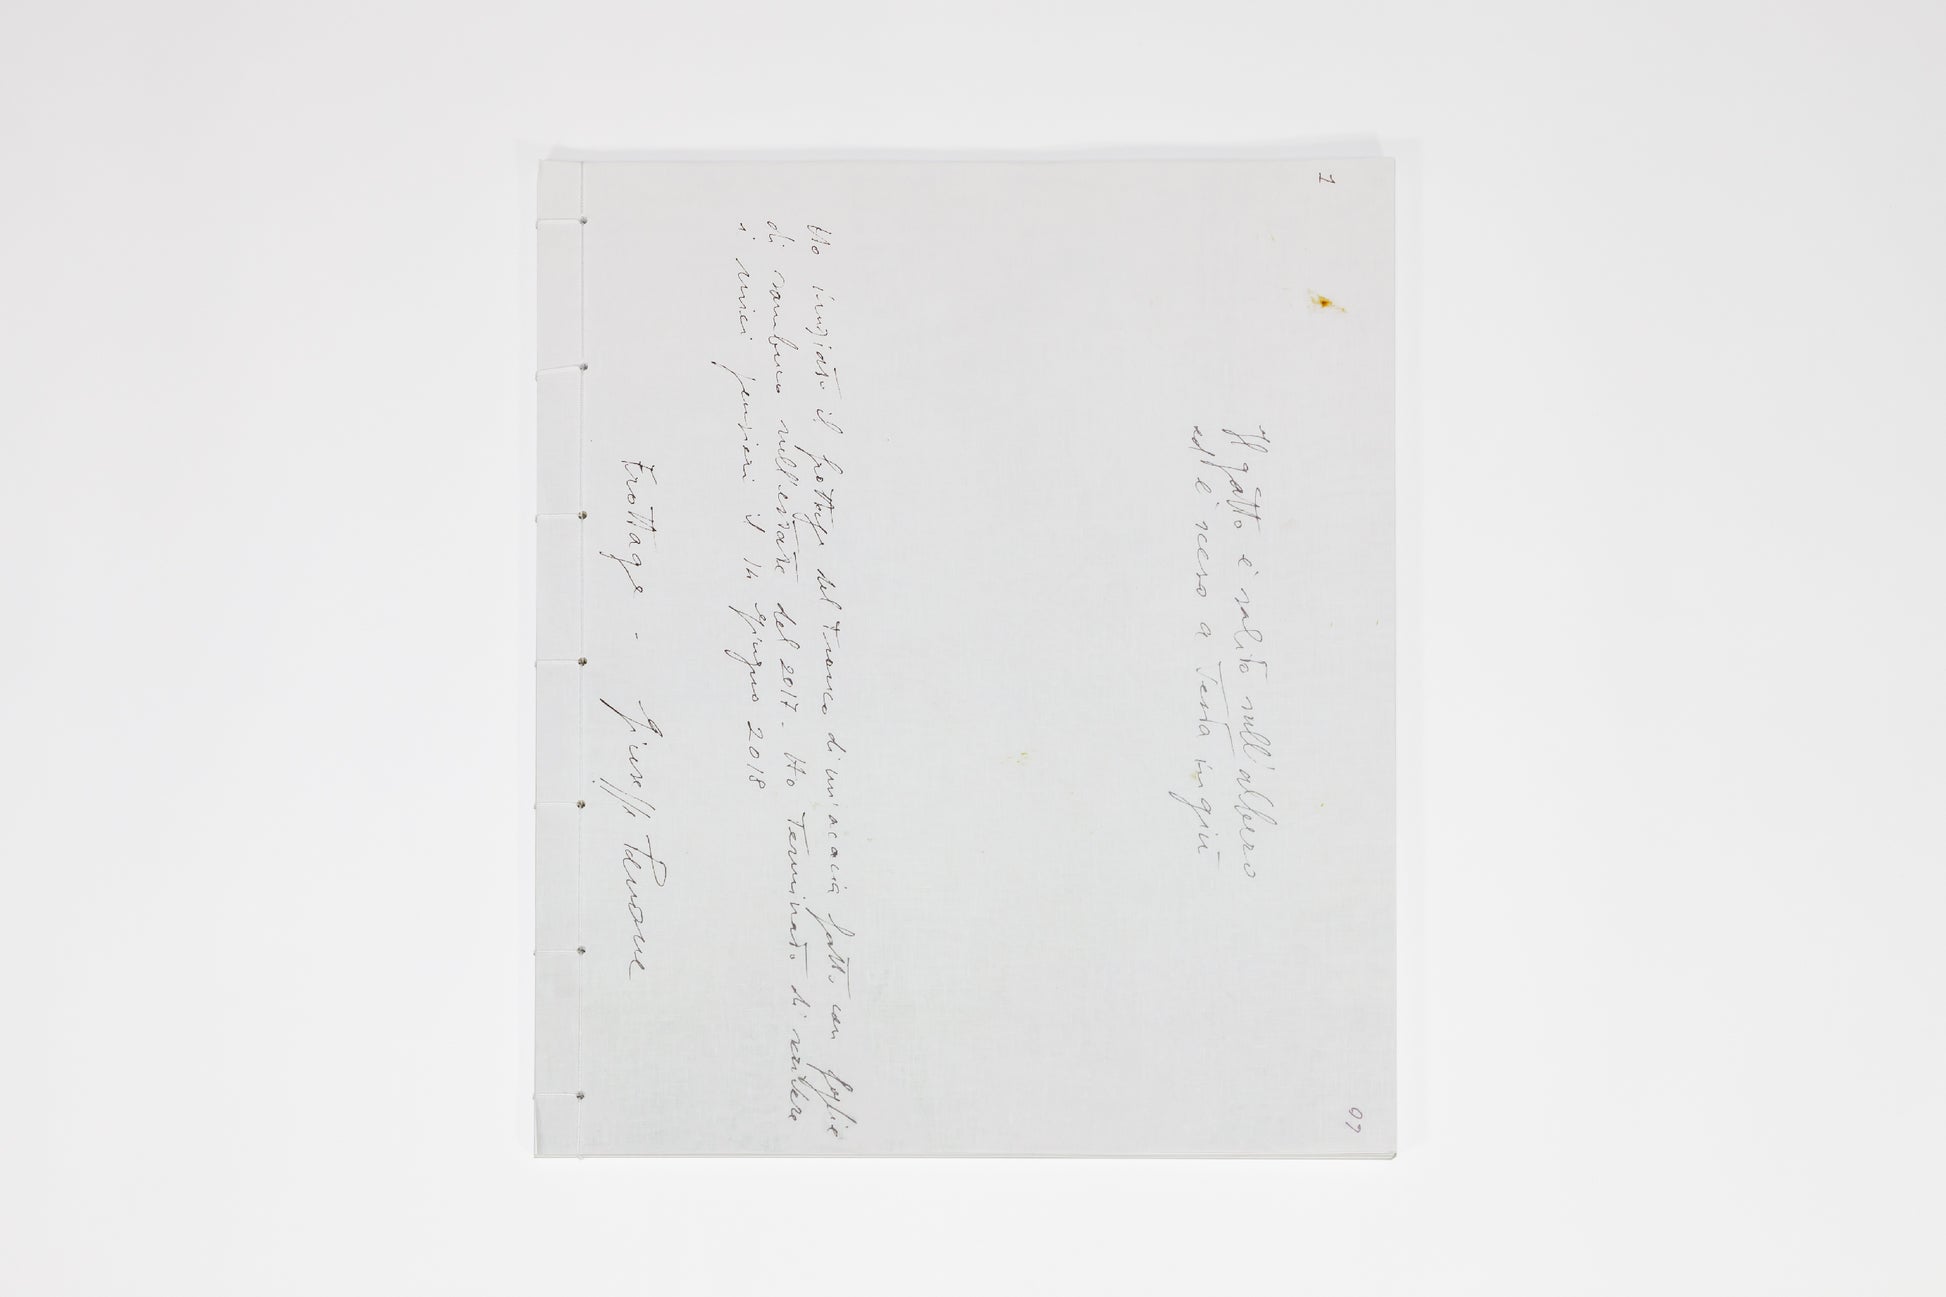 1
07
Il gatto è salito sull'albero
ed è sceso a testa in giù
Ho iniziato il frottage del tronco di un'acacia fatto con foglie
di sambuco nell'estate del 2017. Ho terminato di scrivere
i miei pensieri il 14 giugno 2018
Frottage - Giuseppe Penone